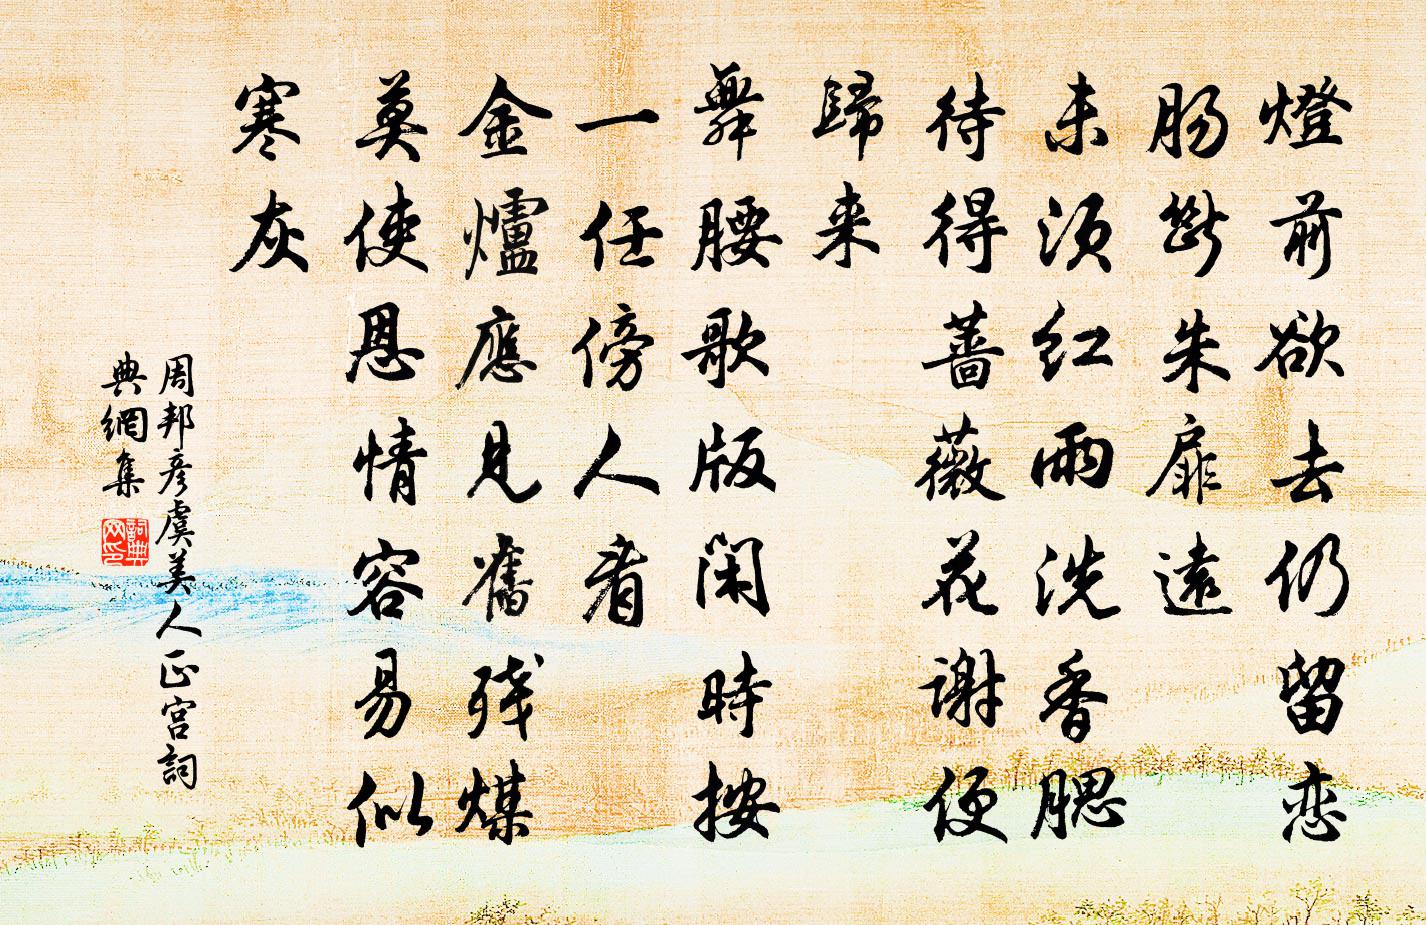 燈前欲去仍留恋
肠断朱扉遠
未须红雨洗香腮
待得蔷薇花谢便
歸来
舞腰歌版闲時按
一任傍人看
金爐應見舊残煤
莫使恩情容易似
寒灰
周邦彦虞美人正宫詞
典網集
詞典网印